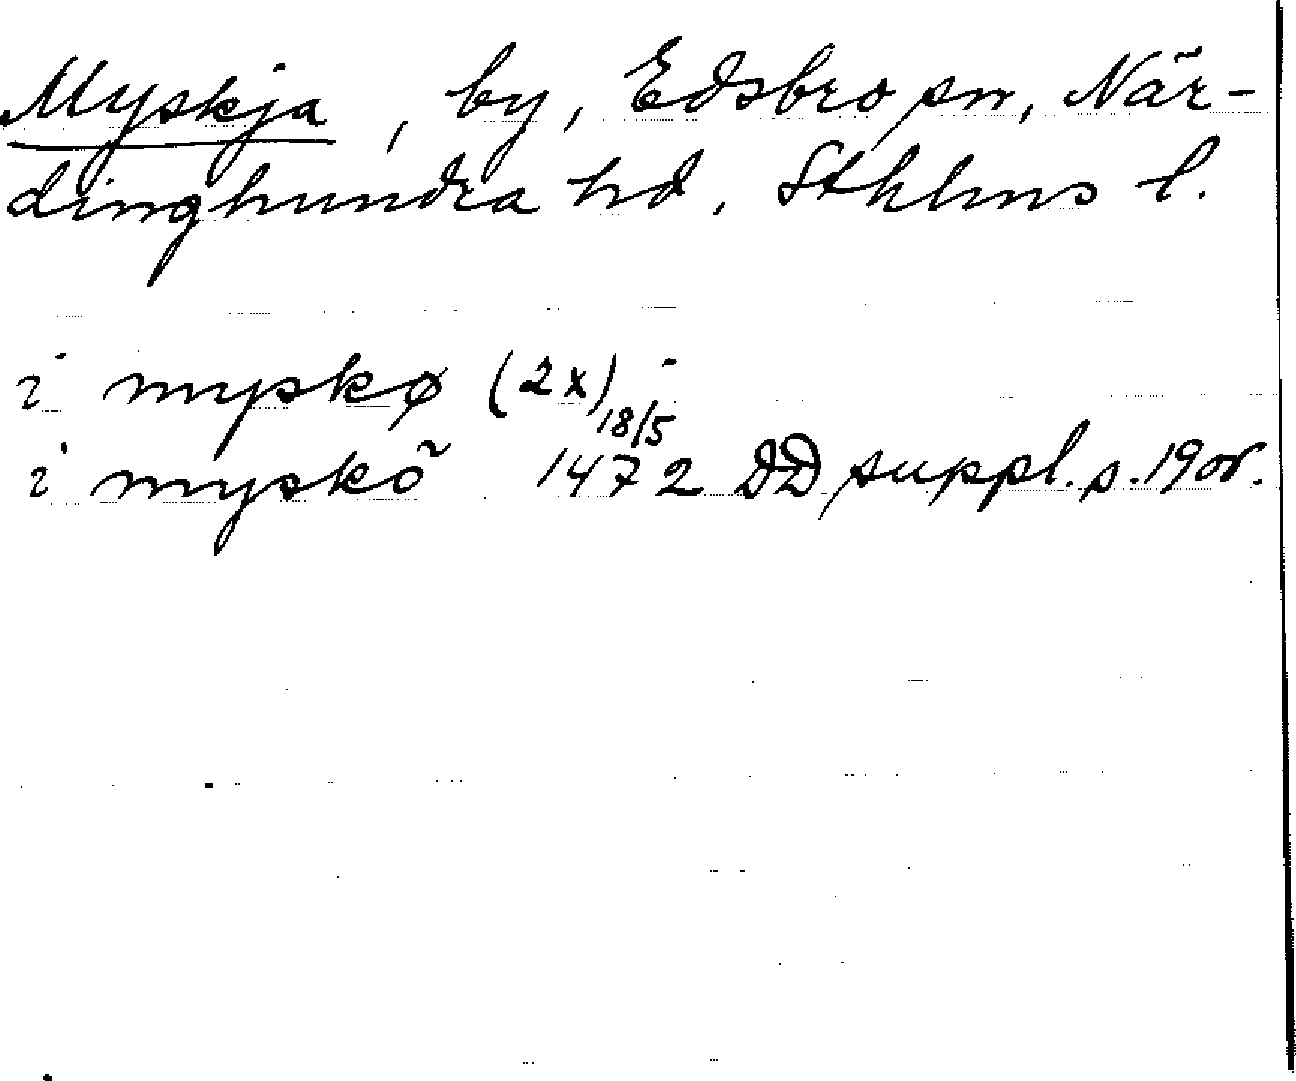 Myskja, by, Edsbro sn, När-
dinghundra hd, Sthlms l.
i myskø (2x)
i myskö 18/5 1472 DD suppl. s. 190r.